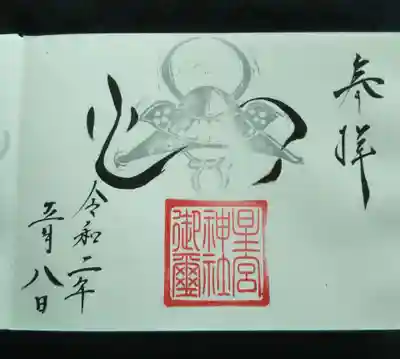 奉拝
星宮
神社
御璽
令和二年
五月八日